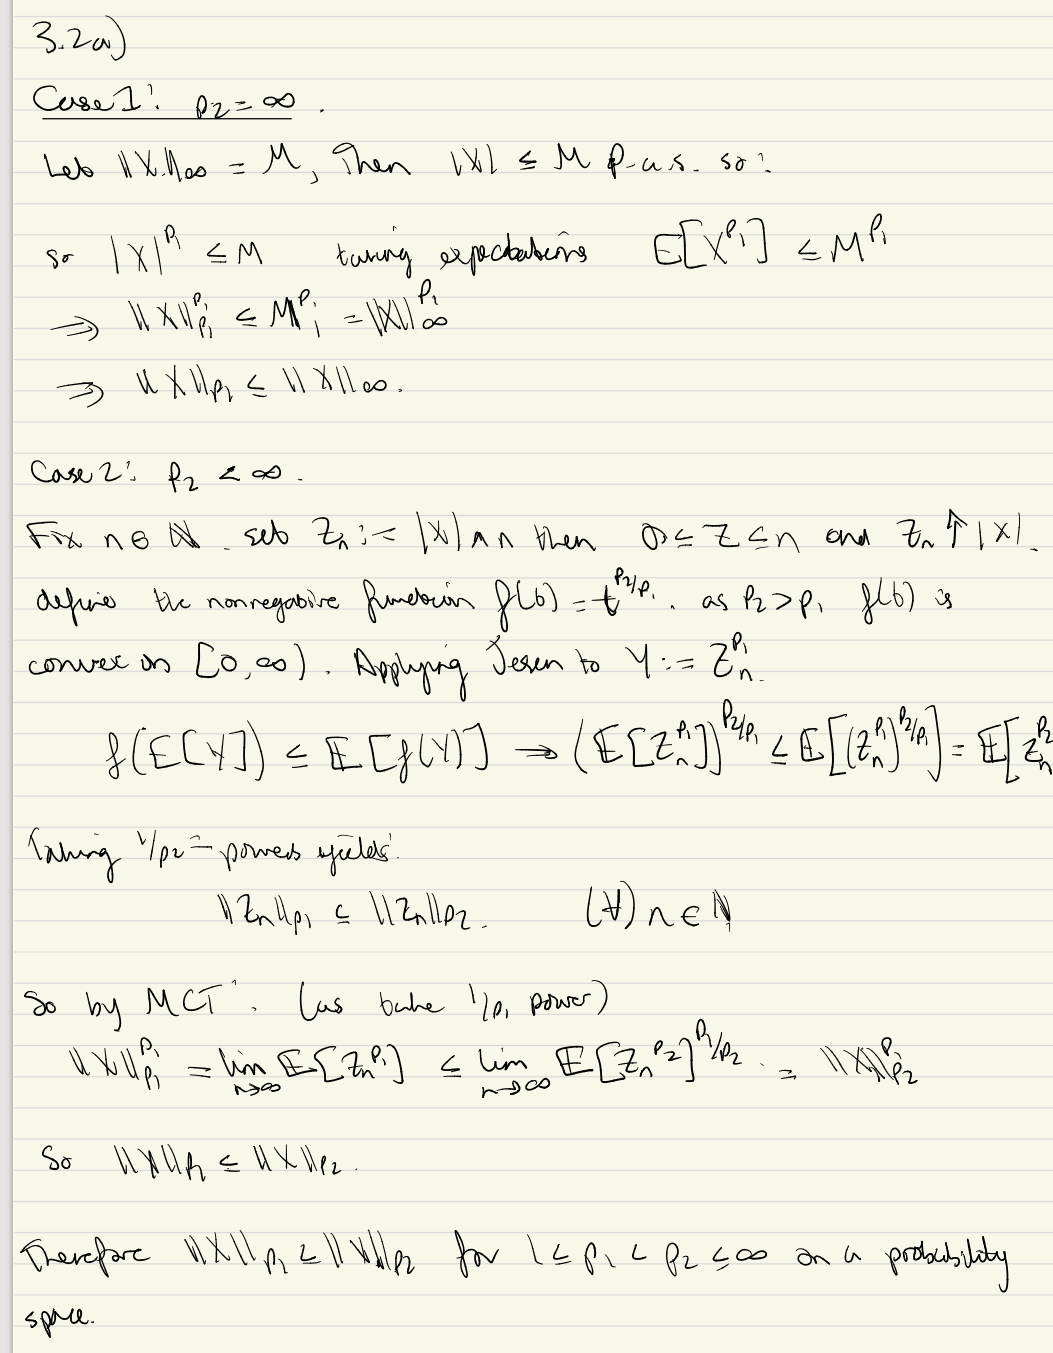 3.2a)
Case 1: p₂ = ∞ .
Let ‖X‖∞ = M, Then |X| ≤ M P-a.s. so:
so |X|^{p₁} ≤ M taking expectations E[X^{p₁}] ≤ M^{p₁}
⇒ ‖X‖_{p₁}^{p₁} ≤ M^{p₁} = ‖X‖_∞^{p₁}
⇒ ‖X‖_{p₁} ≤ ‖X‖∞.
Case 2: p₂ < ∞ .
Fix n ∈ ℕ. set Zₙ := |X| ∧ n then 0 ≤ Z ≤ n and Zₙ ↑ |X|.
define the nonnegative function f(t) = t^{p₂/p₁}. as p₂ > p₁ f(t) is
convex on [0,∞). Applying Jesen to Y := Zₙ^{p₁}.
f(E[Y]) ≤ E[f(Y)] ⇒ (E[Zₙ^{p₁}])^{p₂/p₁} ≤ E[(Zₙ^{p₁})^{p₂/p₁}] = E[Zₙ^{p₂}
Taking 1/p₂ - powers yields:
‖Zₙ‖_{p₁} ≤ ‖Zₙ‖_{p₂}. (∀) n ∈ ℕ
So by MCT: (as take 1/p₁ power)
‖X‖_{p₁}^{p₁} = lim_{n→∞} E[Zₙ^{p₁}] ≤ lim_{n→∞} E[Zₙ^{p₂}]^{p₁/p₂} = ‖X‖_{p₂}^{p₁}
So ‖X‖_{p₁} ≤ ‖X‖_{p₂}.
Therefore ‖X‖_{p₁} ≤ ‖X‖_{p₂} for 1 ≤ p₁ < p₂ ≤ ∞ on a probability
space.